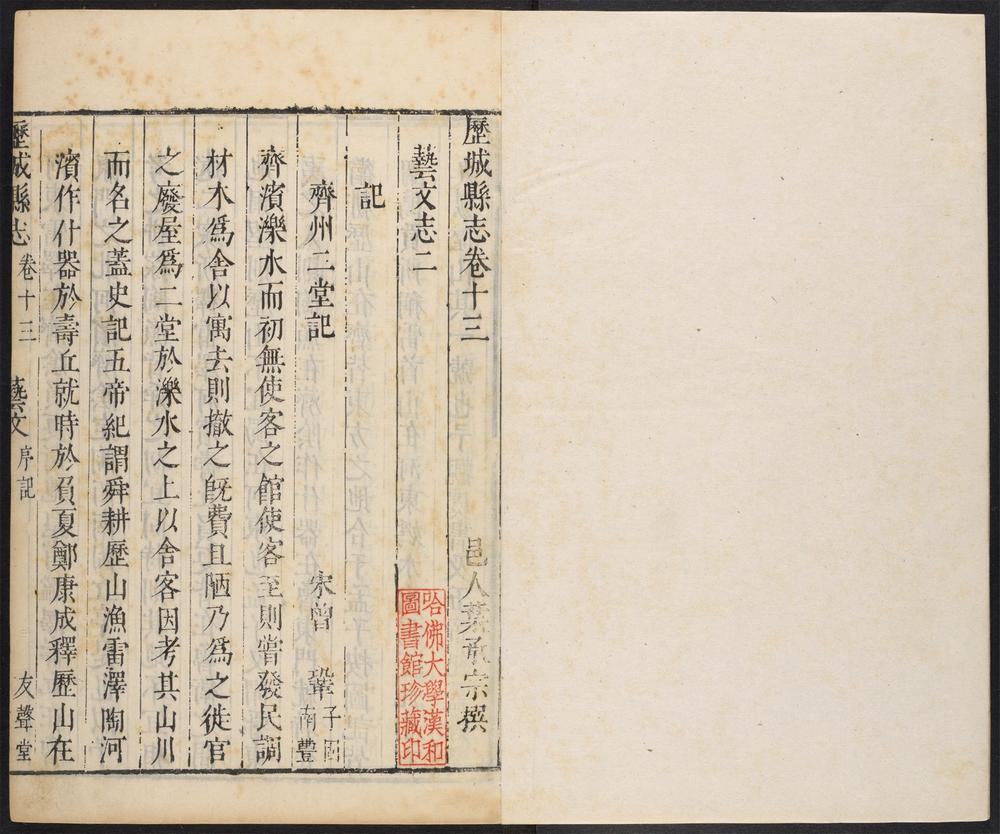 歷城縣志卷十三
邑人葉承宗撰
藝文志二
記
齊州二堂記 宋曾 鞏 子固 南豐
齊濱濼水而初無使客之館使客至則嘗發民調
材木爲舍以寓去則撤之旣費且陋乃爲之徙官
之廢屋爲二堂於濼水之上以舍客因考其山川
而名之蓋史記五帝紀謂舜耕歷山漁雷澤陶河
濱作什器於壽丘就時於負夏鄭康成釋歷山在
歷城縣志 卷十三 藝文 序記 友聲堂
哈佛大學漢和
圖書館珍藏印